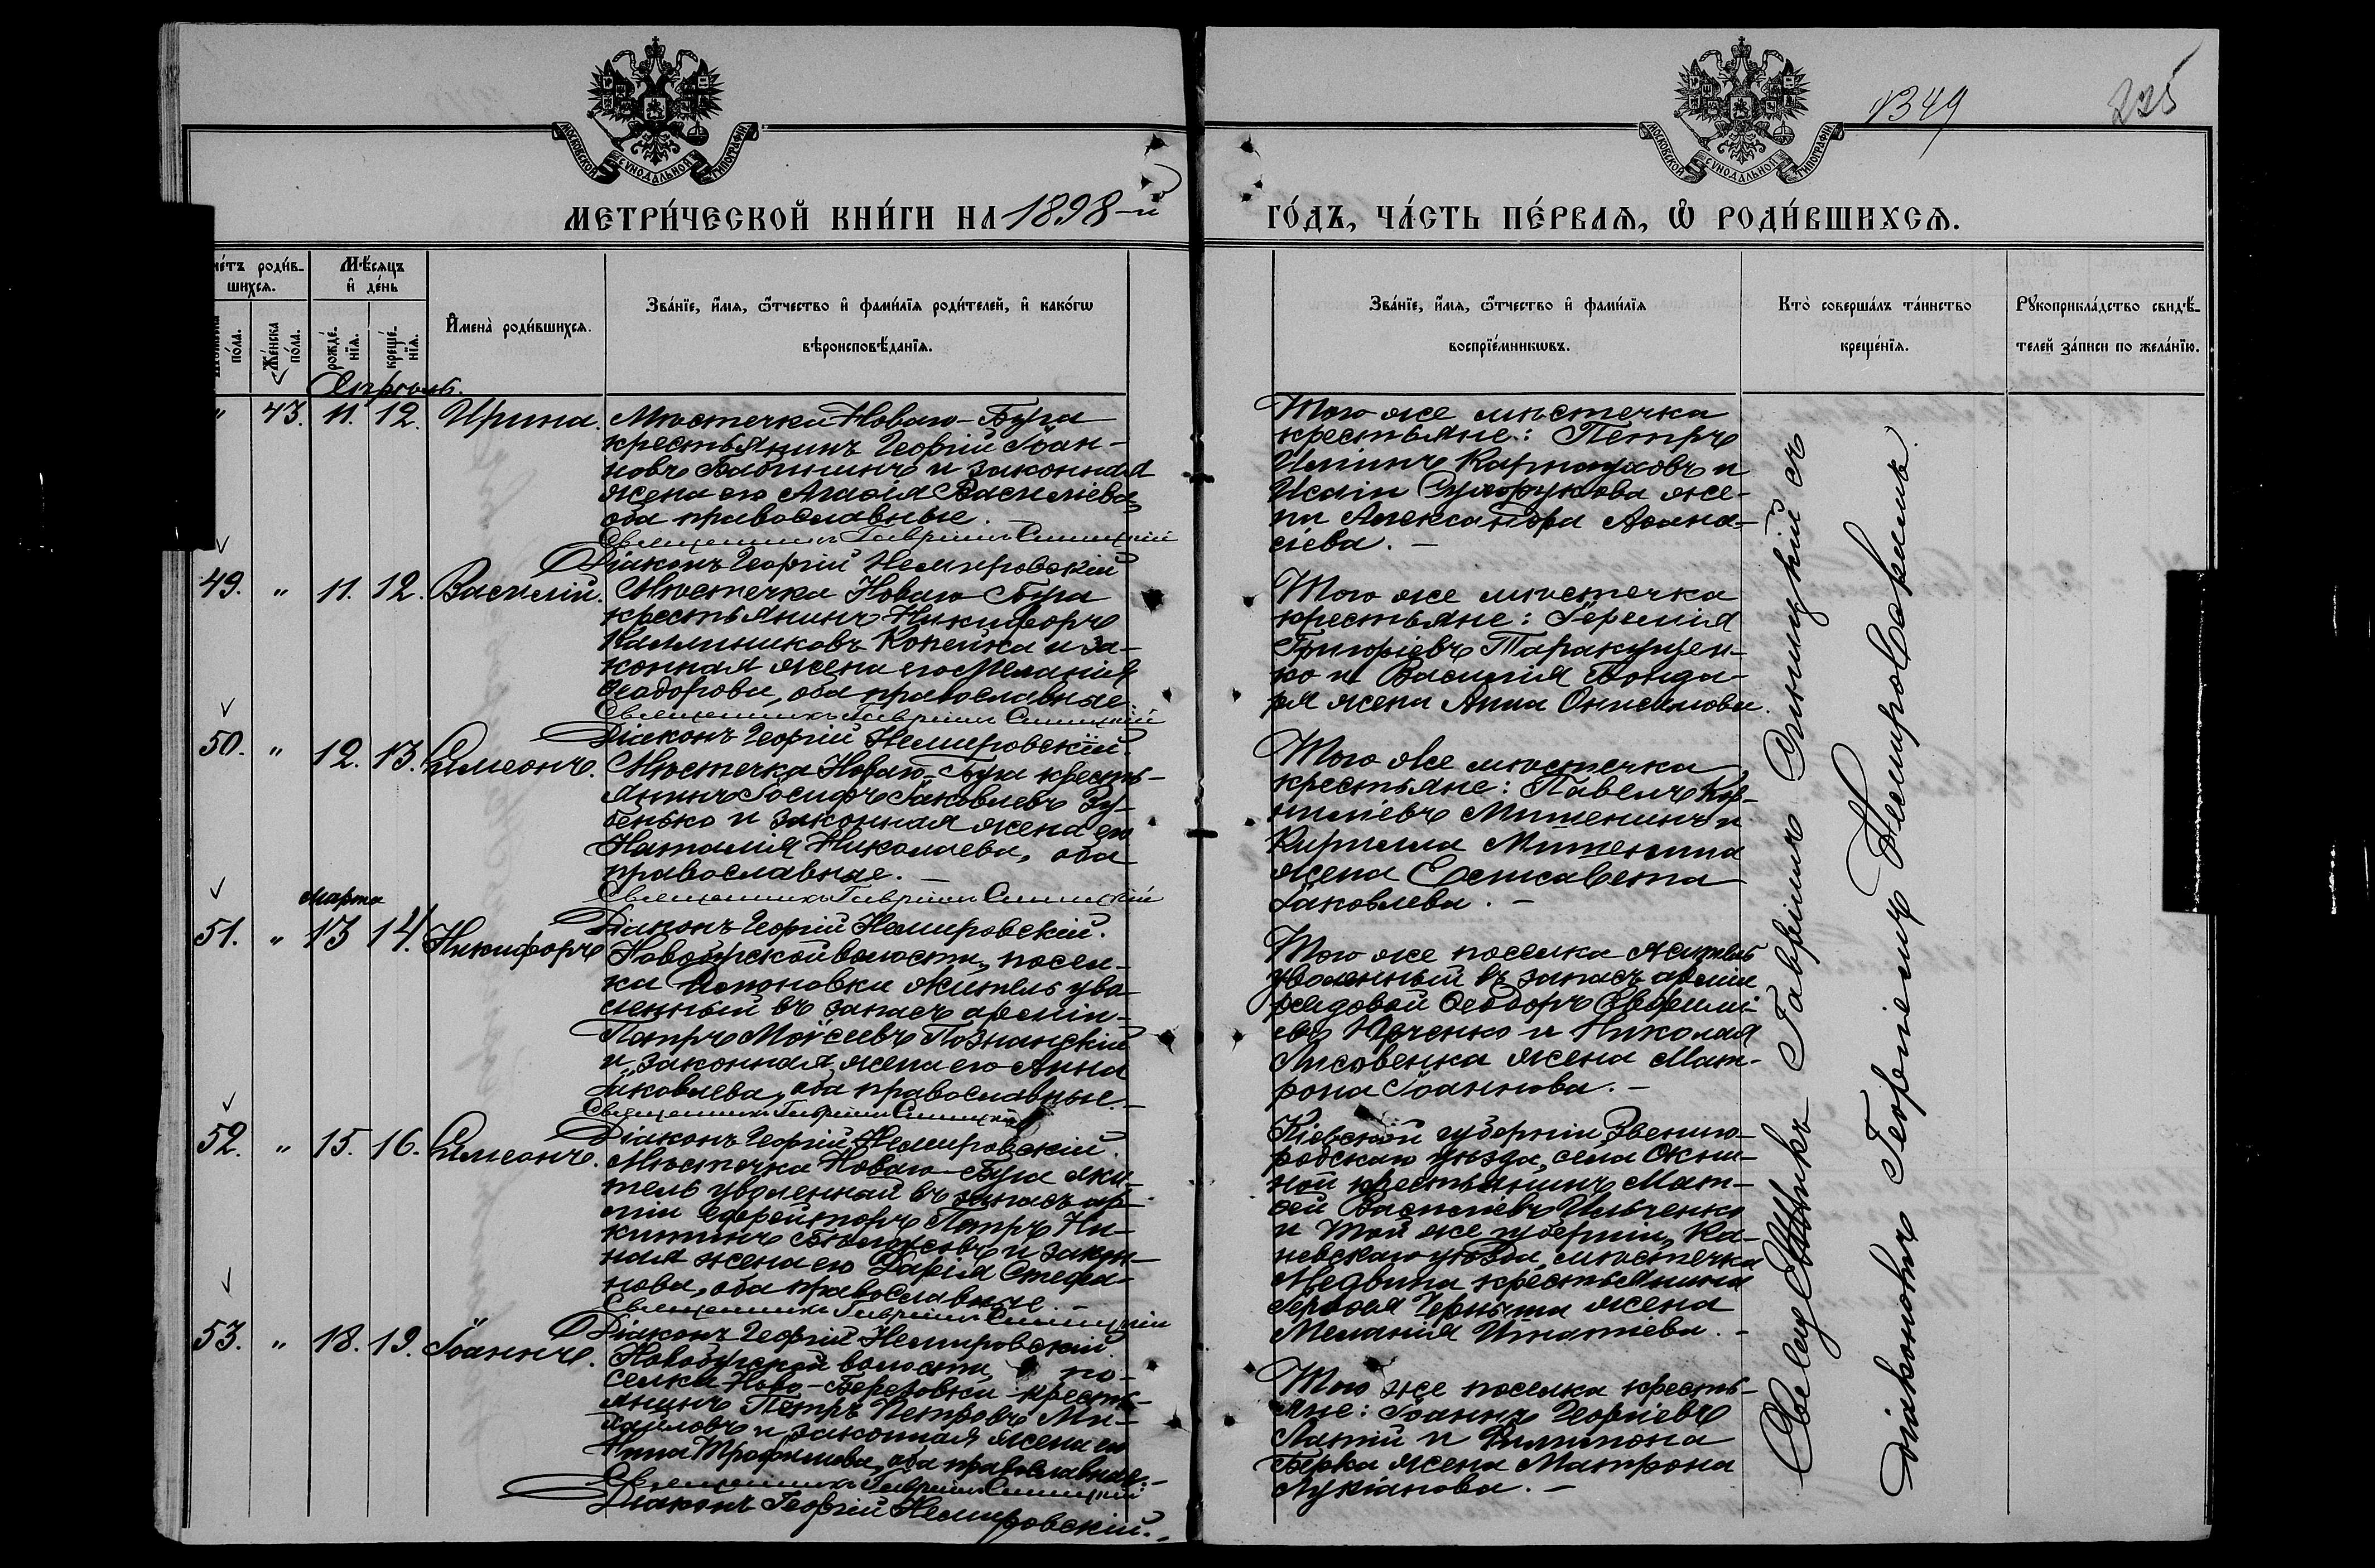 1349
225
МОСКОВСКОЙ СУНОДАЛЬНОЙ ТИПОГРАФІИ
МОСКОВСКОЙ СУНОДАЛЬНОЙ ТИПОГРАФІИ
МЕТРИ́ЧЕСКОЙ КНИ́ГИ НА 1898-й
ГО́ДЪ, ЧА́СТЬ ПЕ́РВАѦ, Ѡ҆ РОДИ́ВШИХСѦ.
роди́в-
шихсѧ.
Мѣ́сѧцъ
и҆ де́нь
по́ла.
Же́нска
по́ла.
рожде́-
нїѧ.
креще́-
нїѧ.
И҆мена̀ роди́вшихсѧ.
Зва́нїе, и҆́мѧ, ѻ҆́тчество и҆ фами́лїѧ роди́телей, и҆ како́гѡ
вѣроисповѣ́данїѧ.
Зва́нїе, и҆́мѧ, ѻ҆́тчество и҆ фами́лїѧ
воспрїе́мникѡвъ.
Кто̀ соверша́лъ та́инство
креще́нїѧ.
Рꙋкоприкла́дство свидѣ́-
телей за́писи по жела́нїю.
Апрѣль.
" 43. 11. 12. Ирина.
Мѣстечка Новаго-Буга
крестьянинъ Георгій Іоан-
новъ и законная
жена его Агаѳія Васильева
оба православные.
Священникъ Гавріилъ Синицкій
Діаконъ Георгій Немировскій
Того же мѣстечка
крестьяне: Петръ
Ильинъ Карнауховъ и
Исаіи Сухорукова же-
на Александра Аѳана-
сіева. —
49. " 11. 12. Василій.
Мѣстечка Новаго Буга
крестьянинъ Никифоръ
Каллиниковъ Копейка и за-
конная жена его Меланія
Ѳеодорова, оба православные.
Священникъ Гавріилъ Синицкій
Діаконъ Георгій Немировскій.
Того же мѣстечка
крестьяне: Іеремія
Григоріевъ Таракуцен-
ко и Василія Бонда-
ря жена Анна Онисимова.
50. " 12. 13. Симеонъ.
Мѣстечка Новаго-Буга кресть-
янинъ Іосифъ Іаковлевъ Зу-
бенько и законная жена его
Наталія Николаева, оба
православные. —
Священникъ Гавріилъ Синицкій
Діаконъ Георгій Немировскій.
Того же мѣстечка
крестьяне: Павелъ Кор-
ниліевъ Митенинъ и
Кирилла Митенина
жена Елисавета
Іаковлева. —
Марта
51. " 13 14. Никифоръ
Новобугской волости, посел-
ка Антоновки житель уво-
ленный въ запасъ арміи
Петръ Моисеевъ Познанскій
и законная жена его Анна
Іаковлева, оба православные.
Священникъ Гавріилъ Синицкій
Діаконъ Георгій Немировскій.
Того же поселка житель
уволенный въ запасъ арміи
рядовой Ѳеодоръ Евфимі-
евъ Юрченко и Николая
Лисовенка жена Мат-
рона Іоаннова. —
52. " 15. 16. Симеонъ.
Мѣстечка Новаго-Буга жи-
тель уволенный въ запасъ ар-
міи Ефрейторъ Петръ Ни-
китинъ и закон-
ная жена его Дарія Стефа-
нова, оба православные.
Священникъ Гавріилъ Синицкій
Діаконъ Георгій Немировскій
Кіевской губерніи Звениго-
родскаго уѣзда, села Окни-
ной крестьянинъ Мат-
ѳей Василіевъ Ильченко
и той же губерніи, Ка-
невскаго уѣзда, мѣстечка
Медвина крестьянина
Черныша жена
Меланія Игнатіева. —
53. " 18. 19. Іоаннъ.
Новобугской волости, по-
селка Ново-Березовки кресть-
янинъ Петръ Петровъ Ми-
хайловъ и законная жена его
Анна Трофимова, оба православные. —
Священникъ Гавріилъ Синицкій
Діаконъ Георгій Немировскій. —
Того же поселка кресть-
яне: Іоаннъ Георгіевъ
Лапій и Филиппона
жена Матрона
Лукіанова. —
Священникъ Гавріилъ Синицкій съ
діакономъ Георгіемъ Немировскимъ.